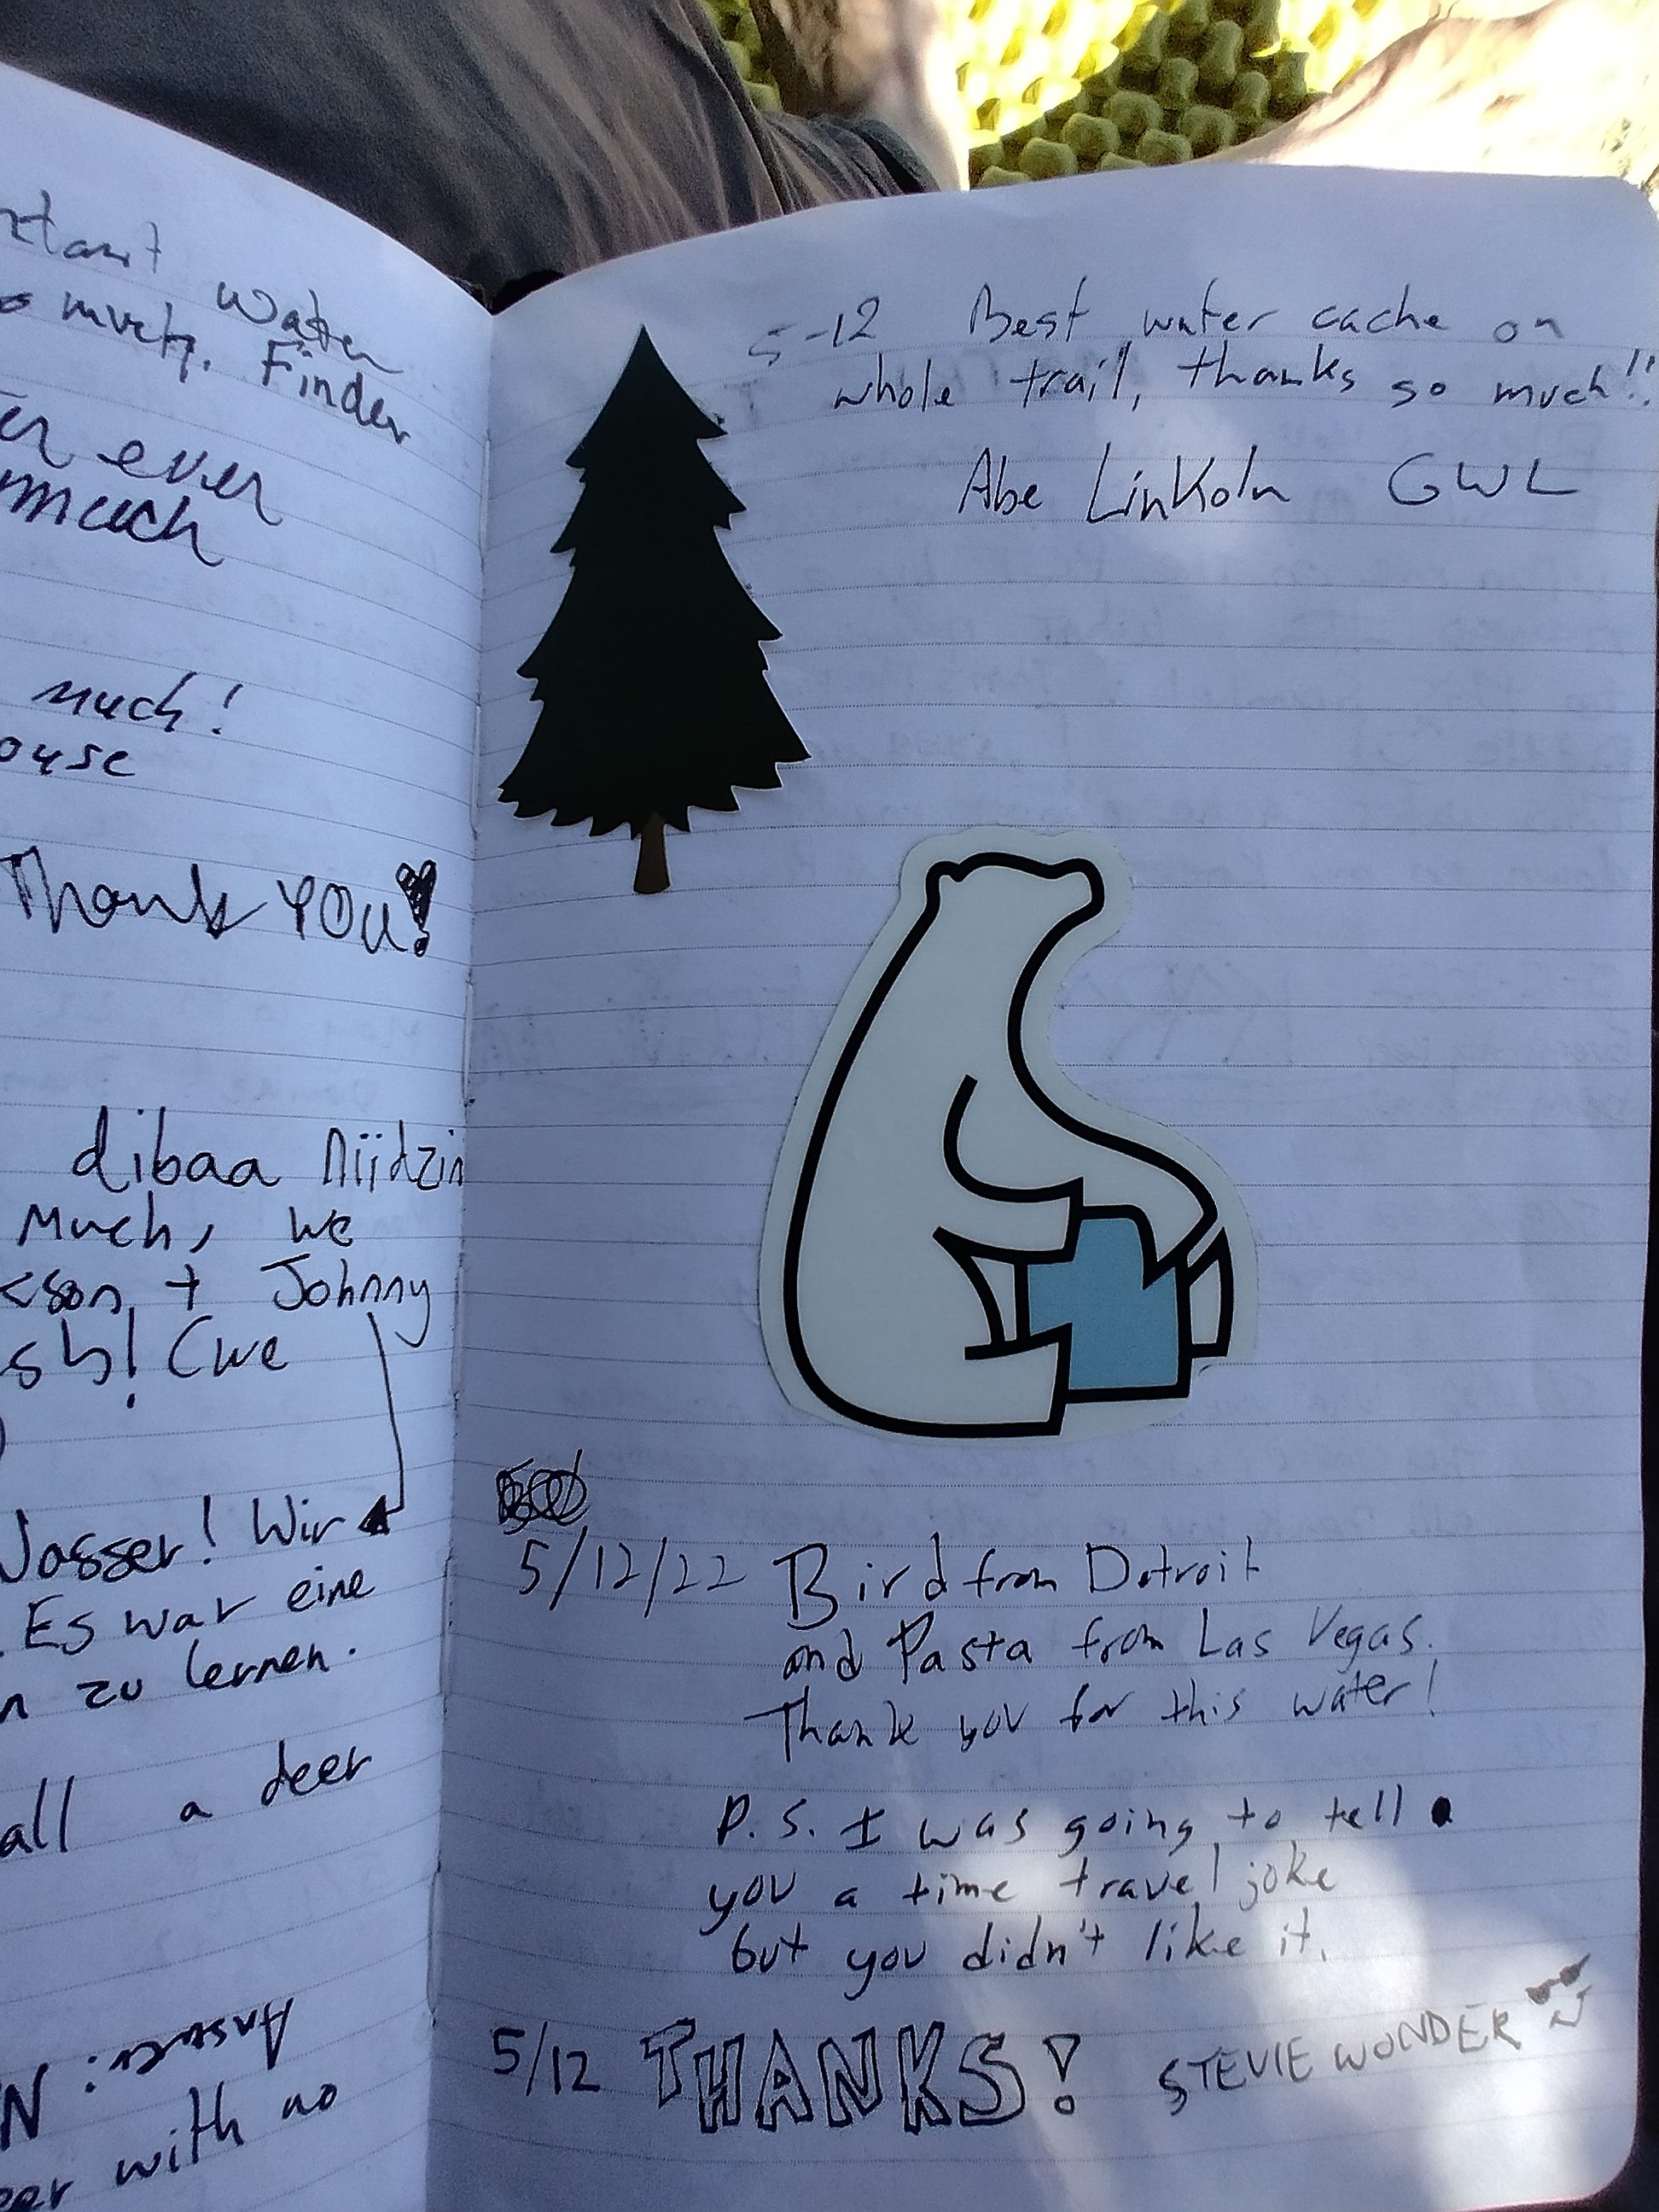 water
much. Finder
ever
much
much!
Thank YOU!
dibaa Niidzin
Much, we
+ Johnny
(we
Wasser! Wir
. Es war eine
zu lernen.
all a deer
Answer: N
with no
5-12 Best water cache on
whole trail, thanks so much!!
Abe LinKoln GWL
5/12/22 Bird from Detroit
and Pasta from Las Vegas.
Thank you for this water!
P.S. I was going to tell
you a time travel joke
but you didn't like it.
5/12 THANKS! STEVIE WONDER